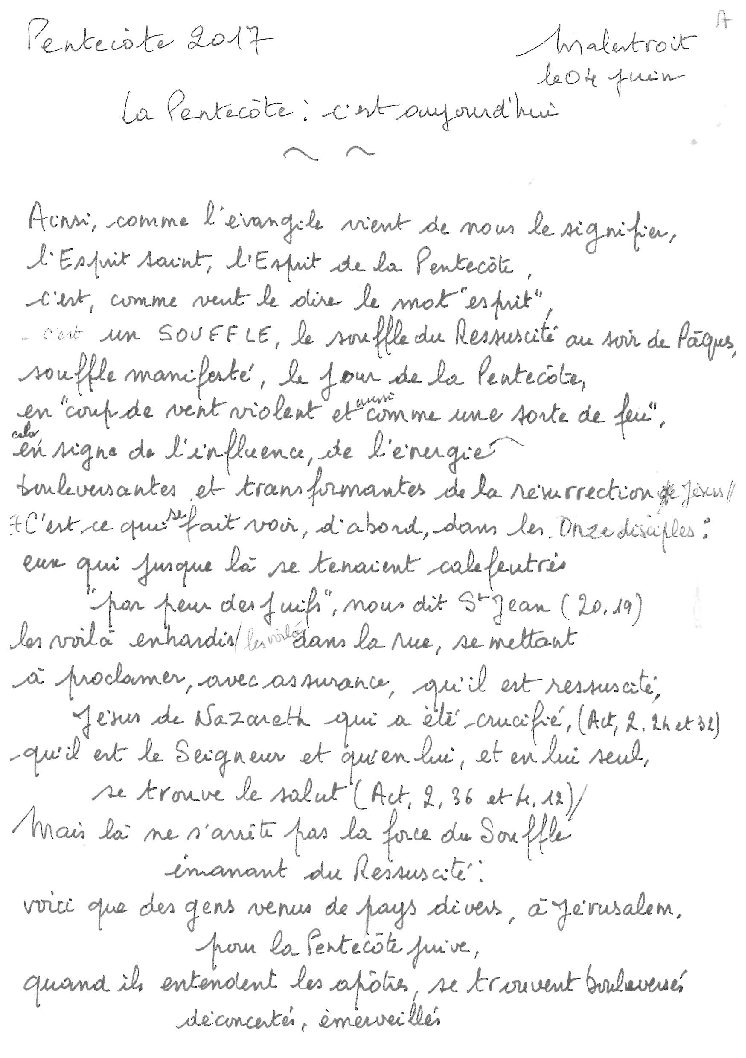 A
Pentecôte 2017
Malestroit
le 04 juin
La Pentecôte : c'est aujourd'hui
~ ~
Ainsi, comme l'évangile vient de nous le signifier,
l'Esprit saint, l'Esprit de la Pentecôte,
c'est, comme veut le dire le mot "esprit",
c'est un SOUFFLE, le souffle du Ressuscité au soir de Pâques,
souffle manifesté, le jour de la Pentecôte,
en "coup de vent violent et aussi comme une sorte de feu",
cela en signe de l'influence, de l'énergie
bouleversantes et transformantes de la résurrection de Jésus//
C'est ce qui se fait voir, d'abord, dans les Onze disciples :
eux qui jusque là se tenaient calefeutrés
"par peur des juifs", nous dit St Jean (20.19)
les voilà enhardis/ les voilà dans la rue, se mettant
à proclamer, avec assurance, qu'il est ressuscité,
Jésus de Nazareth qui a été crucifié, (Act, 2. 24 et 32)
qu'il est le Seigneur et qu'en lui, et en lui seul,
se trouve le salut (Act, 2, 36 et 4. 12)/
Mais là ne s'arrête pas la force du Souffle
émanant du Ressuscité :
voici que des gens venus de pays divers, à Jérusalem,
pour la Pentecôte juive,
quand ils entendent les apôtres, se trouvent bouleversés
déconcertés, émerveillés